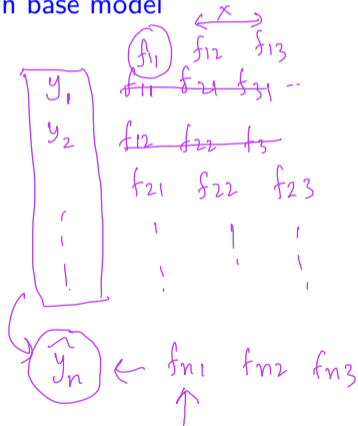 n base model
x
f11 f12 f13
y1 f11 f21 f31 ..
y2 f12 f22 f3
f21 f22 f23
ŷn ← fn1 fn2 fn3